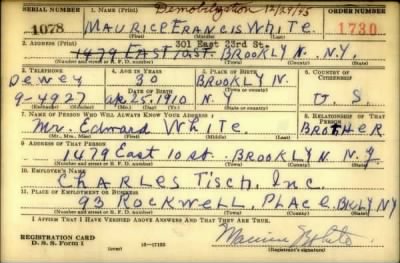 Demobilization 12/29/45
SERIAL NUMBER 1. NAME (Print) ORDER NUMBER
1078 MAURICE FRANCIS White 1730
(First) (Middle) (Last)
2. ADDRESS (Print) 301 East 23rd St.
1479 EAST 10 st. BROOKLYN. N.Y.
(Number and street or R. F. D. number) (Town) (County) (State)
3. TELEPHONE 4. AGE IN YEARS 5. PLACE OF BIRTH 6. COUNTRY OF CITIZENSHIP
Dewey 30 BROOKLYN
DATE OF BIRTH (Town or county)
9-4927 5, 1910 N.Y U. S.
(Exchange) (Number) (Mo.) (Day) (Yr.) (State or country)
7. NAME OF PERSON WHO WILL ALWAYS KNOW YOUR ADDRESS 8. RELATIONSHIP OF THAT PERSON
Mr. Edward White. BROTHER
(Mr., Mrs., Miss) (First) (Middle) (Last)
9. ADDRESS OF THAT PERSON
1479 East 10 st. BROOKLYN N.Y
(Number and street or R. F. D. number) (Town) (County) (State)
10. EMPLOYER'S NAME
CHARLES Tisch, Inc.
11. PLACE OF EMPLOYMENT OR BUSINESS
93 ROCKWELL PLACE BKLYN NY
(Number and street or R. F. D. number) (Town) (County) (State)
I AFFIRM THAT I HAVE VERIFIED ABOVE ANSWERS AND THAT THEY ARE TRUE.
REGISTRATION CARD
D. S. S. Form 1 16—17105 (Registrant's signature)
Maurice F White